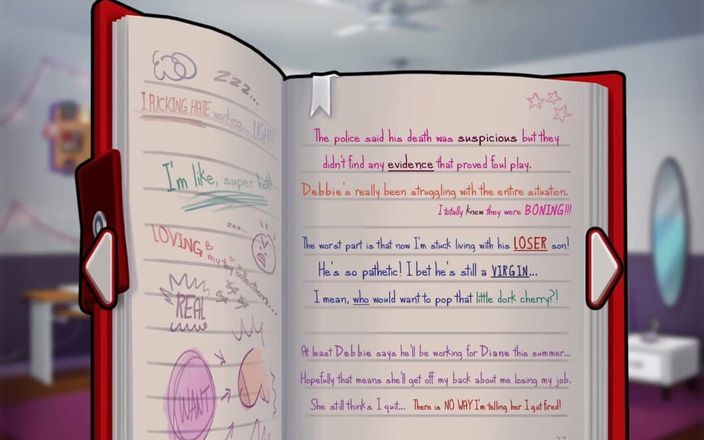 zzz...
I FUCKING HATE working... UGH!
I'm like, super hot!
zzz...
LOVING
my toy collection...
REAL
WANT
The police said his death was suspicious but they
didn't find any evidence that proved foul play.
Debbie's really been struggling with the entire situation.
I totally know they were BONING!!!
The worst part is that now I'm stuck living with his LOSER son!
He's so pathetic! I bet he's still a VIRGIN...
I mean, who would want to pop that little dork cherry?!
At least Debbie says he'll be working for Diane this summer...
Hopefully that means she'll get off my back about me losing my job.
She still thinks I quit... There is NO WAY I'm telling her I got fired!